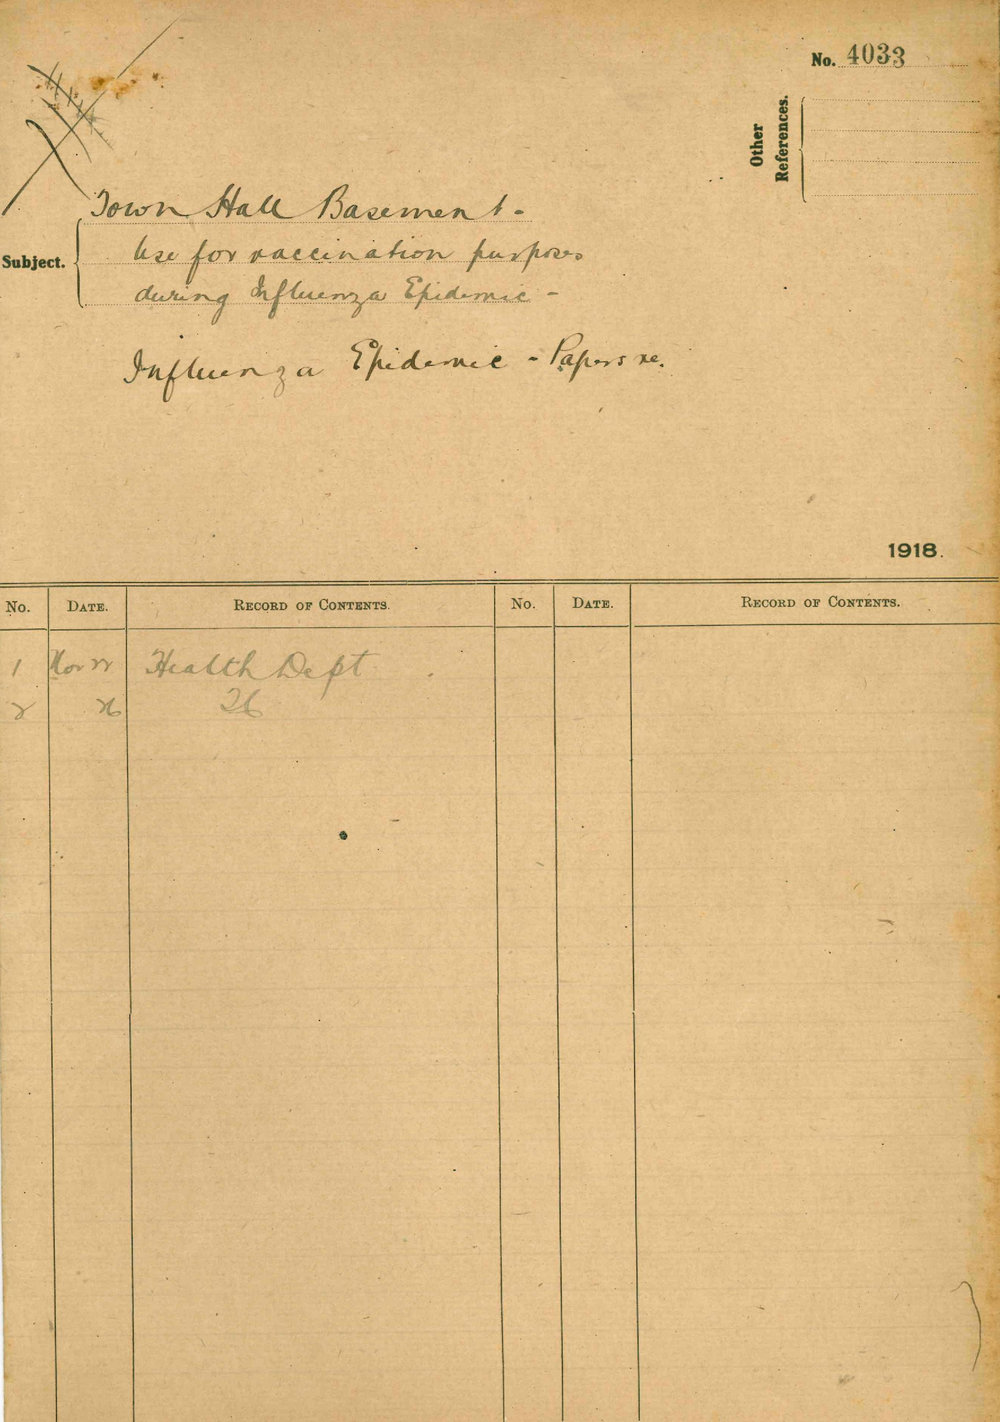 No. 4033
Other
References.
Town Hall Basement -
Subject.
Use for vaccination purposes
during Influenza Epidemic -
Influenza Epidemic - Papers re.
1918.
No. DATE. RECORD OF CONTENTS. No. DATE. RECORD OF CONTENTS.
1 Nov 22 Health Dept
2 26